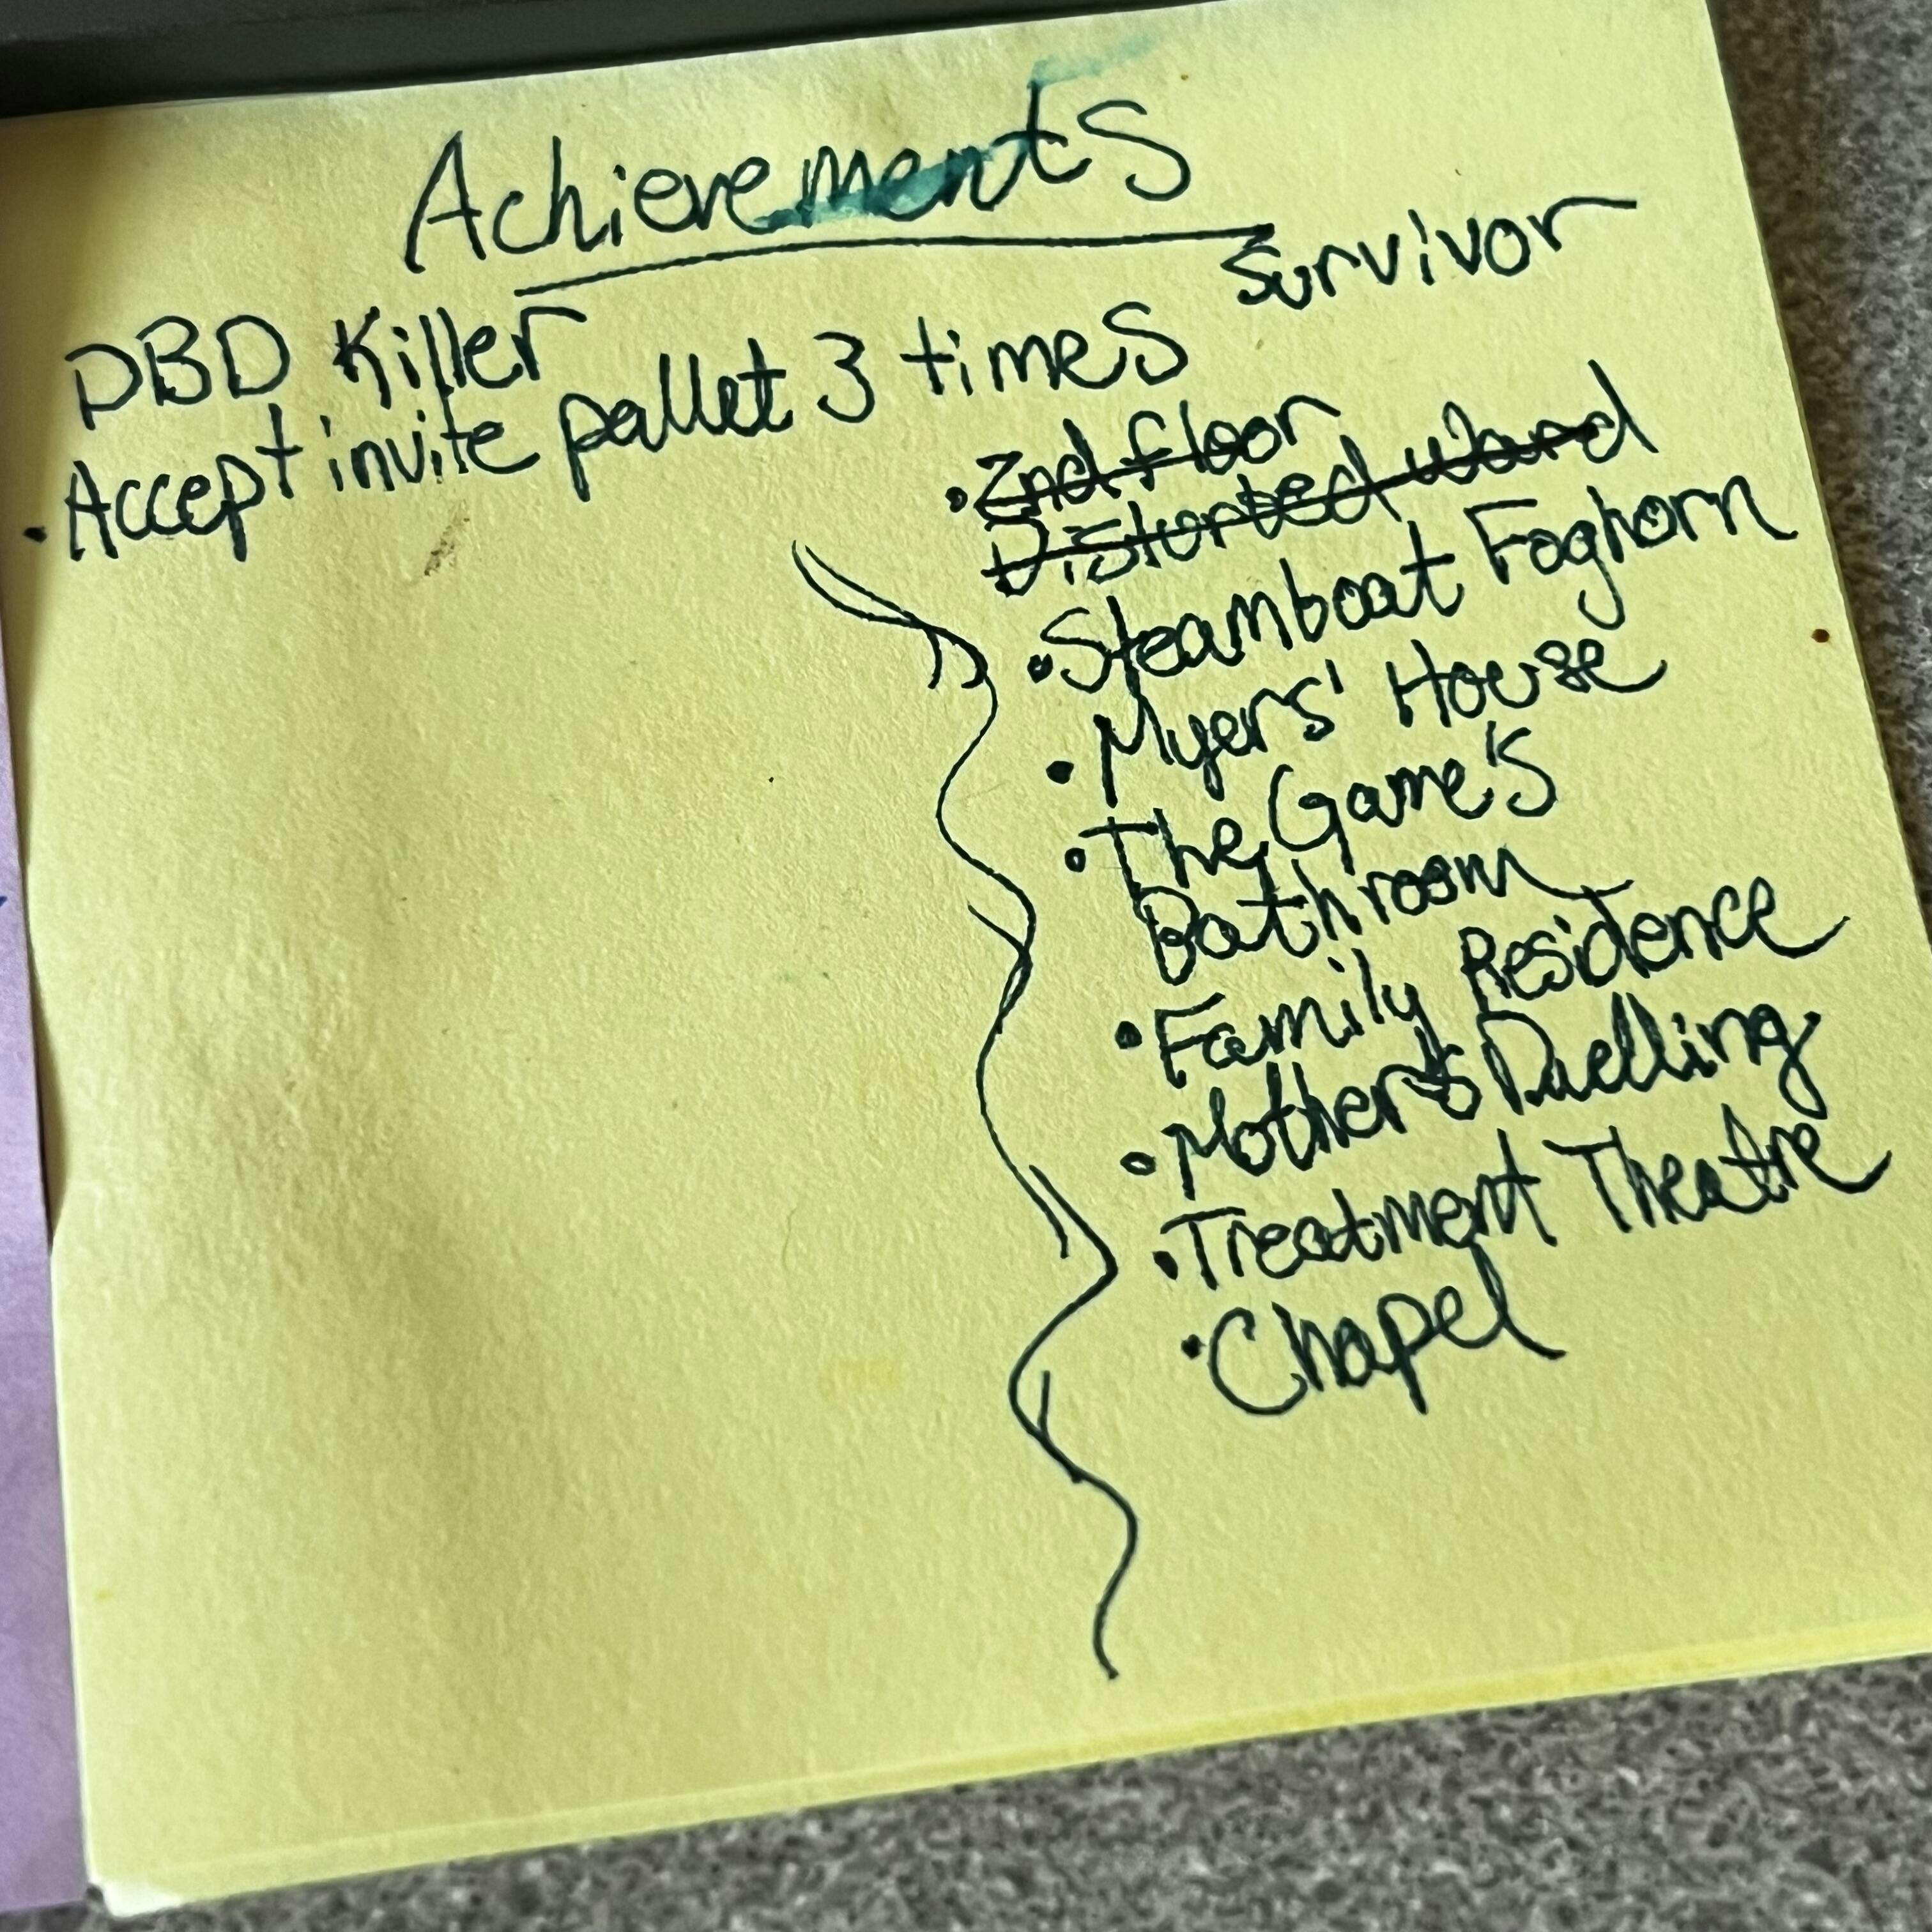 Achievements
DBD Killer
• Accept invite pallet 3 times
Survivor
• 2nd floor
Distorted ward
• Steamboat Foghorn
• Myers' House
• The Game's
Bathroom
• Family Residence
• Mother's Dwelling
• Treatment Theatre
• Chapel